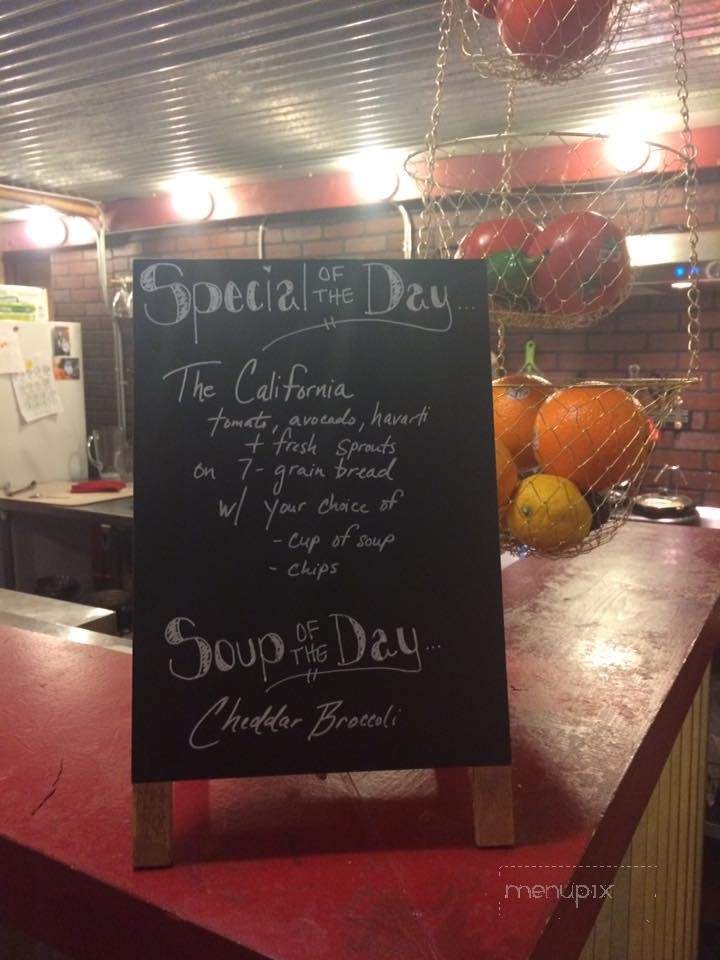 Special OF THE Day...
The California
tomato, avocado, havarti
+ fresh sprouts
on 7-grain bread
w/ your choice of
- cup of soup
- chips
Soup OF THE Day...
Cheddar Broccoli
menupix